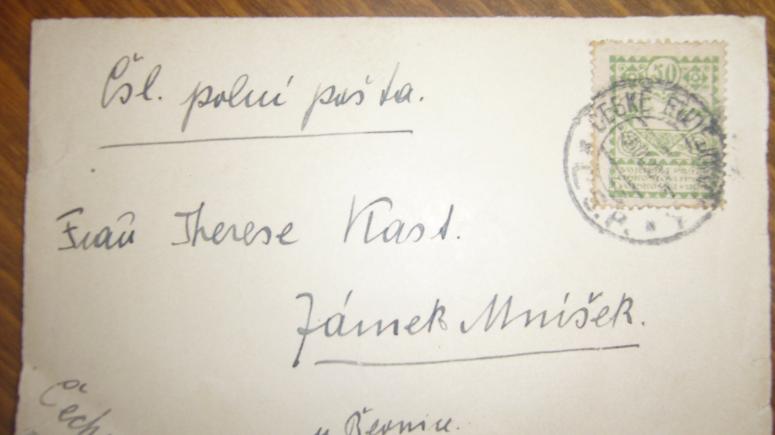 Čsl. polní pošta.
50
ČESKÉ BUDĚJOVICE
Frau Therese Kast.
Zámek Mníšek.
u
Čech